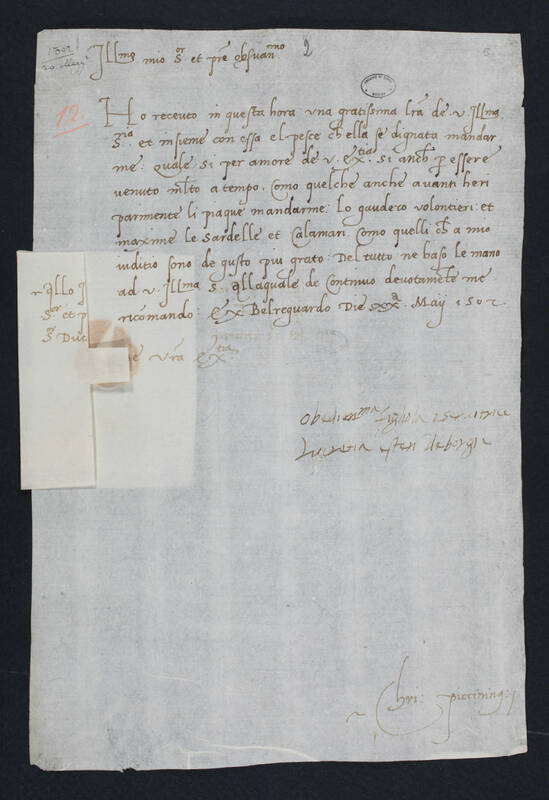 1502
20. Maij
Illmo mio Sor et pre obsuanmo
2
5
12.
Ho receuto in questa hora una gratissima lra de v. Illma
Sria. et insieme con essa el pesce ch ella se dignata mandar
me: quale si per amore de v. Extia. si anch p essere
venuto mlto a tempo. Como quelche anche avanti heri
parimente li piaque mandarme: Lo gaudero volontieri: et
maxime le Sardelle et Calamari. Como quelli ch a mio
iuditio sono de gusto piu grato: Del tutto ne baso le mano
ad v. Illma S. allaquale de Continuo devotamete me
ricomando: Ex Belreguardo Die xxa. Maij 1502
De vra Extia
r Allo J
Sor et p
Sr Duc
obedienma figliola e servitrice
Lucretia esten de borgia
Chri: piccining: